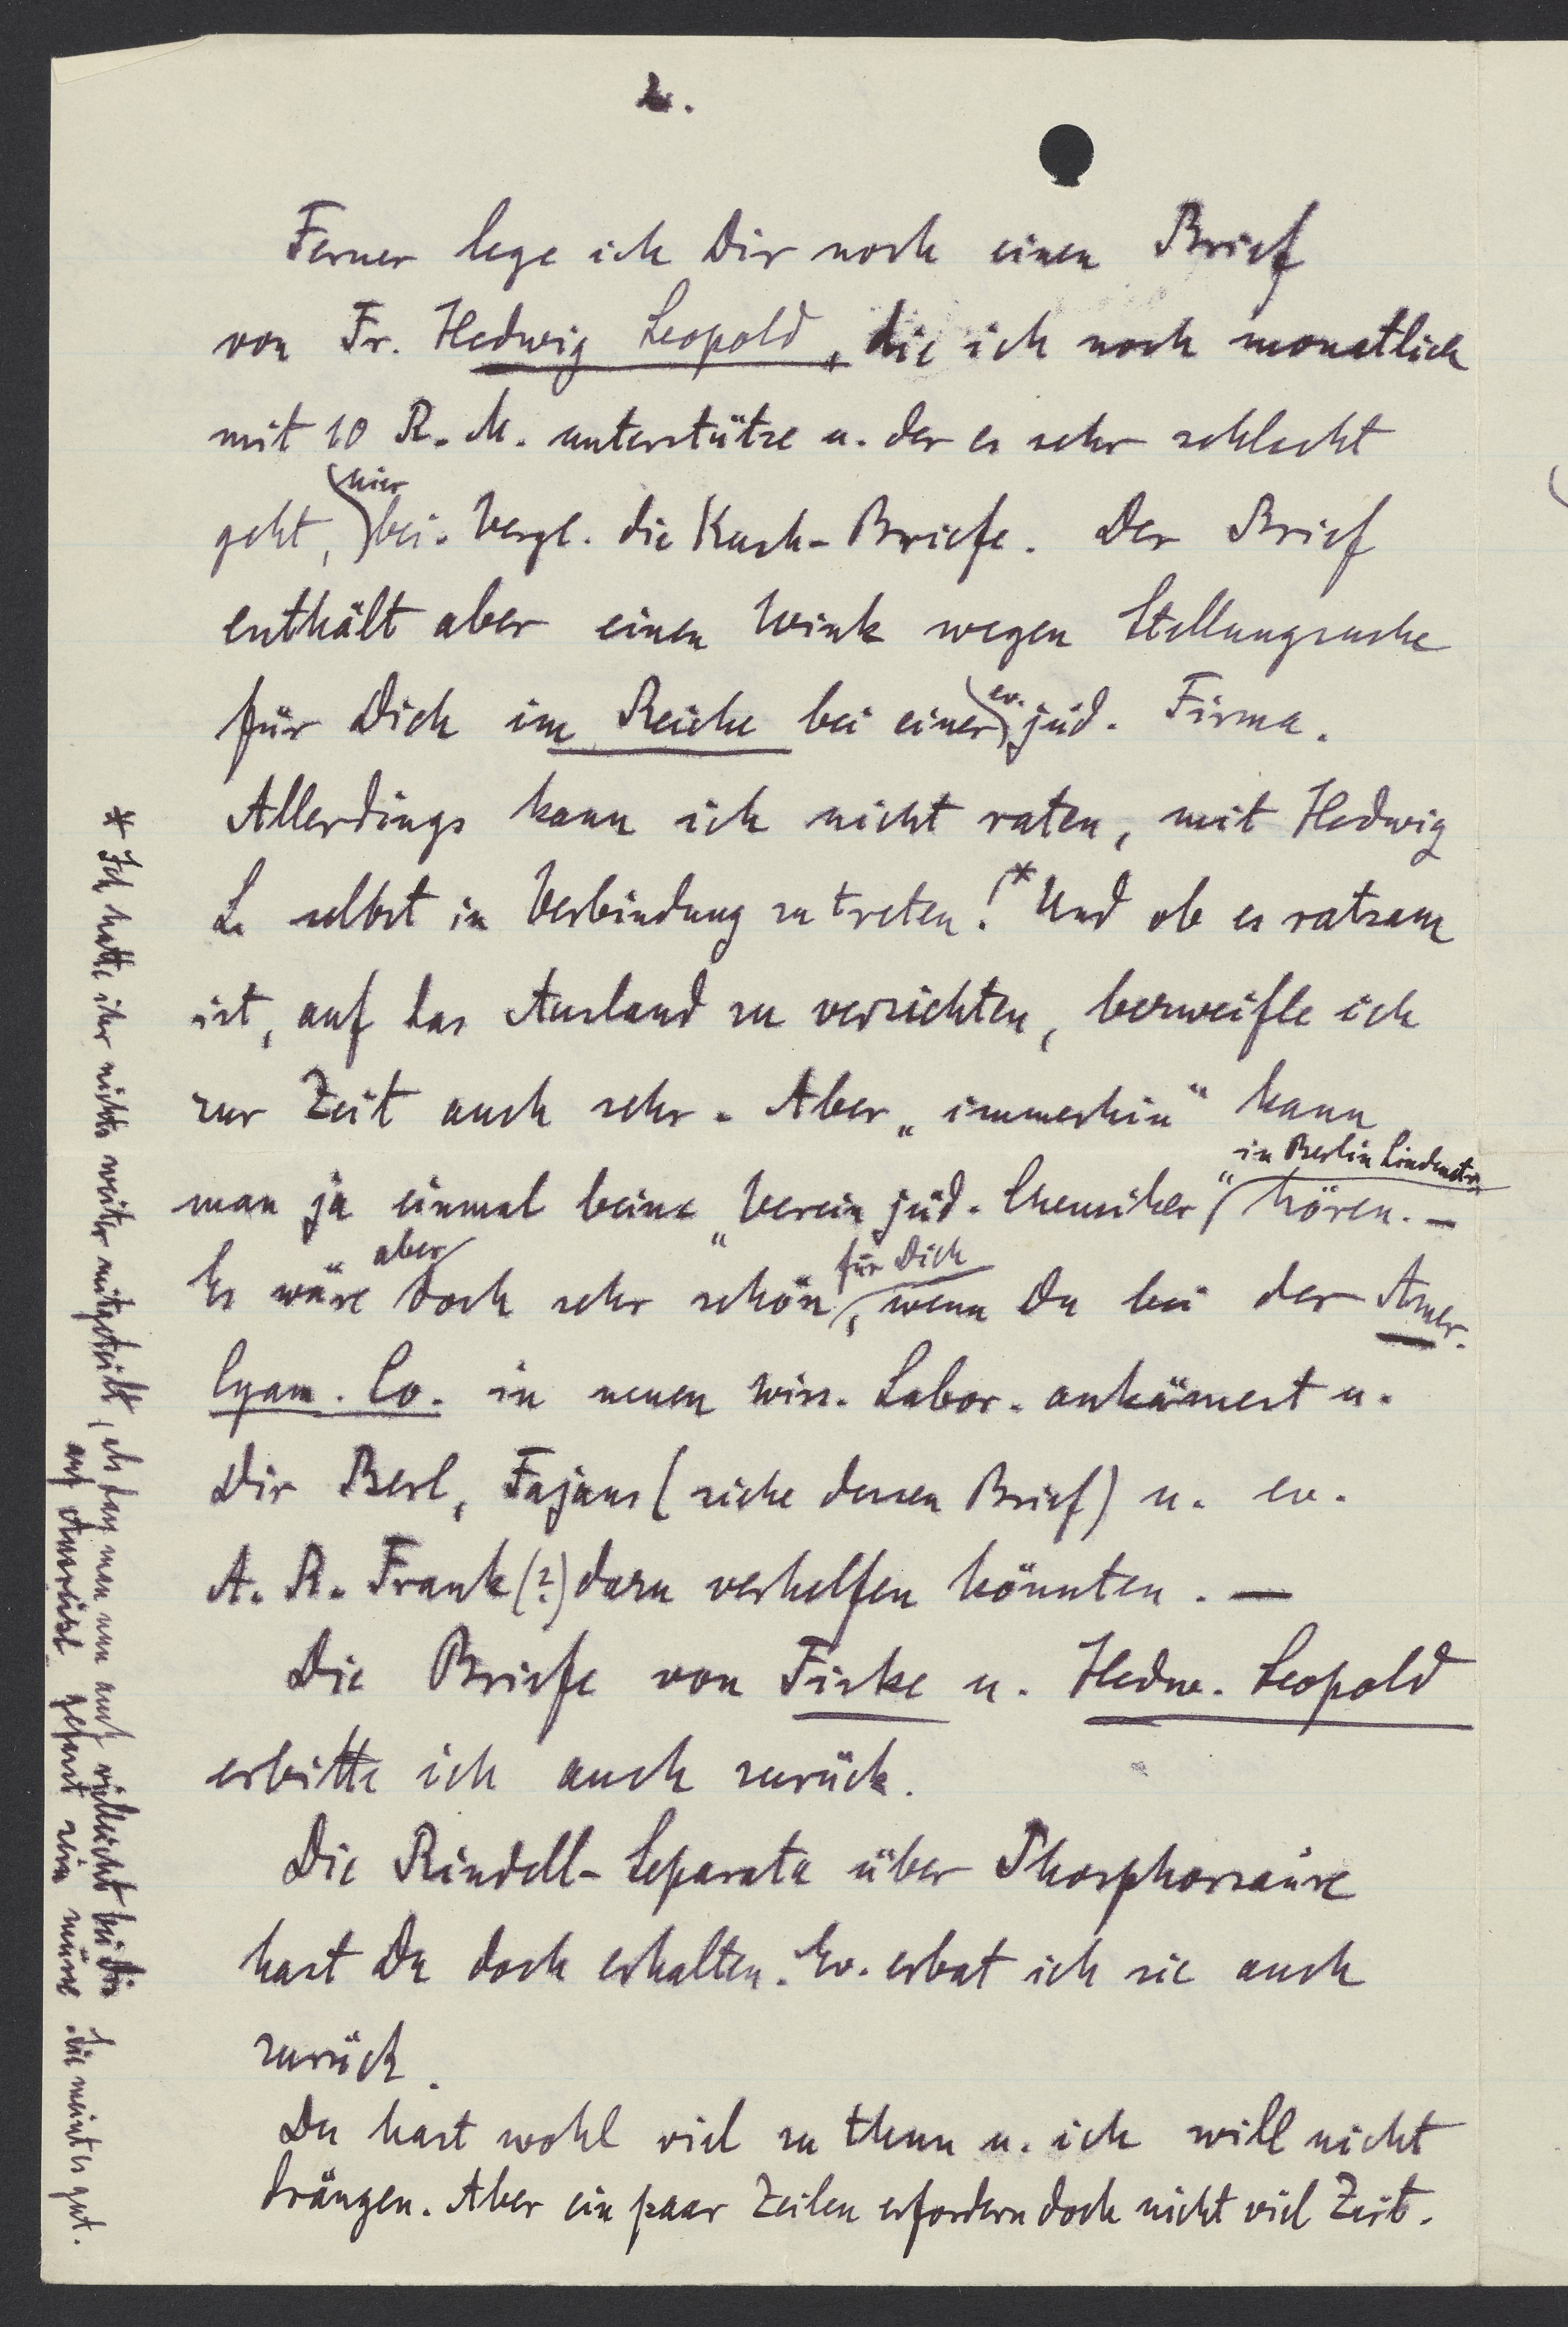 2.
Ferner lege ich Dir noch einen Brief
von Fr. Hedwig Leopold, die ich noch monatlich
mit 10 R. M. unterstütze u. der es sehr schlecht
geht, hier bei. Vergl. die Kusk-Briefe. Der Brief
enthält aber einen Wink wegen Stellungsuche
für Dich im Reiche bei einer ev. jüd. Firma.
Allerdings kann ich nicht raten, mit Hedwig
L. selbst in Verbindung zu treten!* Und ob es ratsam
ist, auf das Ausland zu verzichten, bezweifle ich
zur Zeit auch sehr. Aber „immerhin“ kann
man ja einmal beim „Verein jüd. Chemiker“ in Berlin Lindenstr. hören. —
Es wäre aber doch sehr schön für Dich, wenn Du bei der Amer.
Cyam. Co. in neuen wiss. Labor. ankämest u.
Dir Berl, Fajans (siehe dessen Brief) u. ev.
A. R. Frank (?) dazu verhelfen könnten. —
Die Briefe von Fiske u. Hedw. Leopold
erbitte ich auch zurück.
Die Rindell-Separata über Phosphorsäure
hast Du doch erhalten. Ev. erbat ich sie auch
zurück.
Du hast wohl viel zu thun u. ich will nicht
drängen. Aber ein paar Zeilen erfordern doch nicht viel Zeit.
* Ich hatte ihr nichts weiter mitgeteilt, als daß man nun auch vielleicht bei Dir
auf gefasst sein müsse. Sie meint es gut.